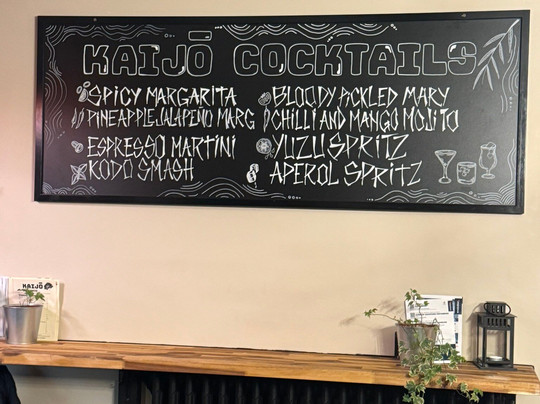 KAIJŌ COCKTAILS
SPICY MARGARITA
PINEAPPLE JALAPENO MARG
ESPRESSO MARTINI
KODO SMASH
BLOODY PICKLED MARY
CHILLI AND MANGO MOJITO
YUZU SPRITZ
APEROL SPRITZ
KAIJŌ